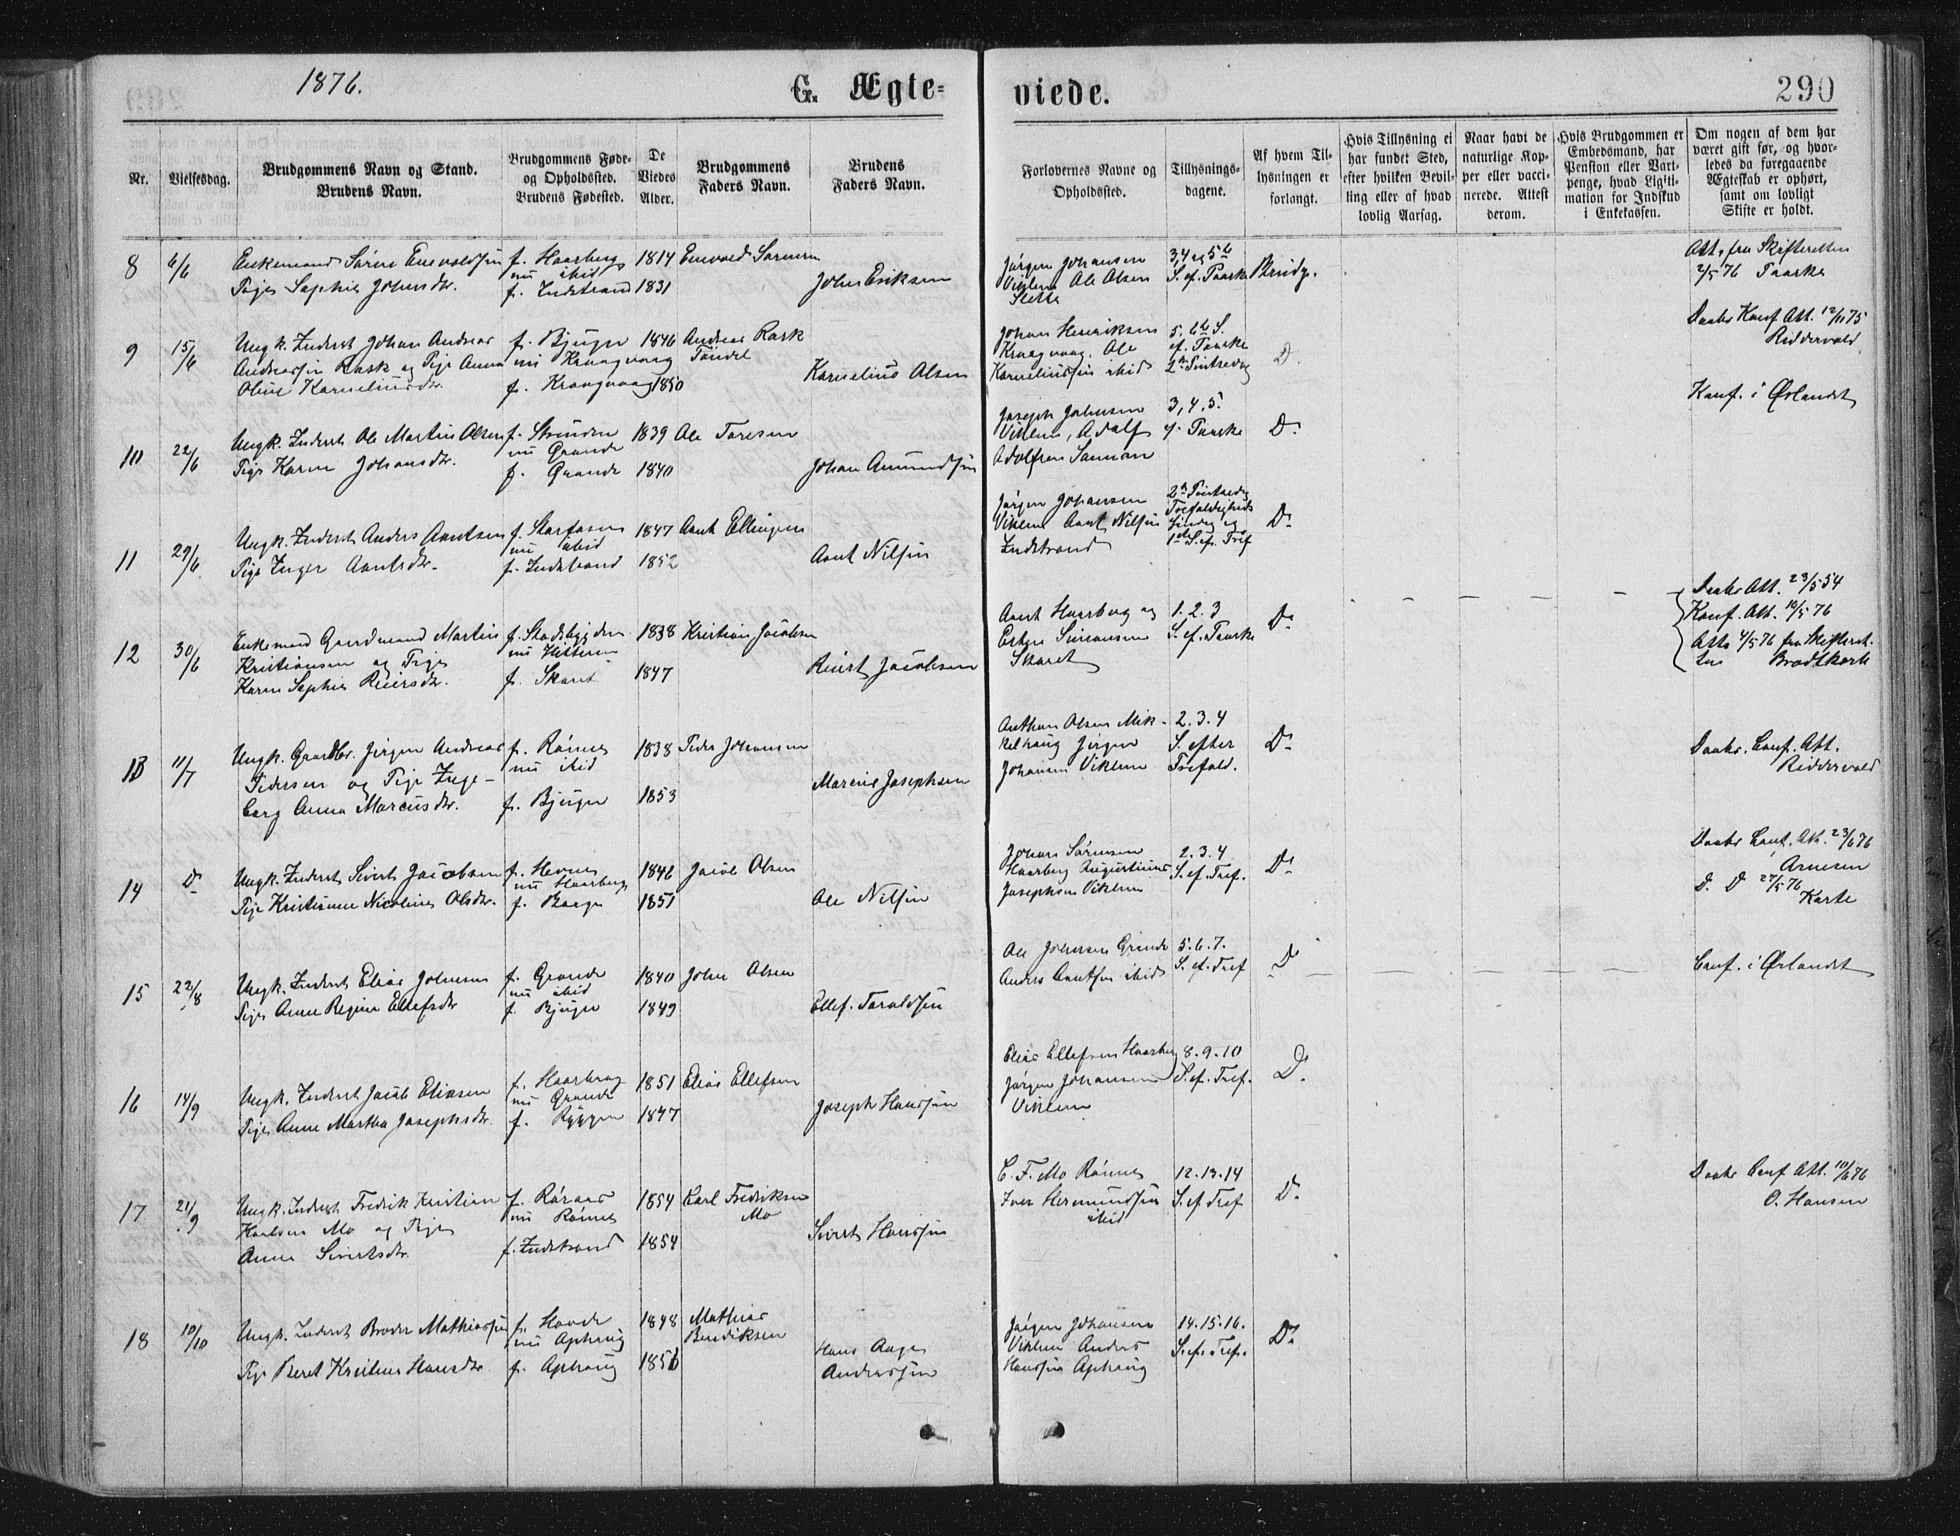 1876.
G. Ægte-
viede.
290
Nr.
Vielsesdag.
Brudgommens Navn og Stand.
Brudens Navn.
Brudgommens Føde-
og Opholdssted.
Brudens Fødested.
De
Viedes
Alder.
Brudgommens
Faders Navn.
Brudens
Faders Navn.
Forlovernes Navne og
Opholdssted.
Tillysnings-
dagene.
Af hvem Til-
lysningen er
forlangt.
Hvis Tillysning ei
har fundet Sted,
efter hvilken Bevil-
ling eller af hvad
lovlig Aarsag.
Naar havt de
naturlige Kop-
per eller vacci-
nerede. Attest
derom.
Hvis Brudgommen er
Embedsmand, har
Pension eller Vart-
penge, hvad Ligiti-
mation for Indskud
i Enkekassen.
Om nogen af dem har
været gift før, og hvor-
ledes da foregaaende
Ægteskab er ophørt,
samt om lovligt
Skifte er holdt.
8 6/6
Enkemand Sören Enevoldsen
Pige Sophie Johnsdr.
f. Haarberg
nu ibid
f. Indstrand
1814
1831
Enevold Sörensen
John Eriksen
Jörgen Johansen
Viklem Ole Olsen
Slette
3, 4 og 5te
S. ef. Paaske
Brudg.
Att. fra Skifteretten
2/5 76 Paaske
9 15/6
Ungk. Inderst Johan Andreas
Andreassen Rask og Pige Anna
Oline Korneliusdr.
f. Bjugn
nu Kraagvaag
f. Kraagvaag
1846
1850
Andreas Rask
Töndel
Kornelius Olsen
Johan Henriksen
Kraagvaag, Ole
Korneliussen ibid
5, 6te S.
ef. Paaske
2den Pintsedag
D.
Daabs Konf Att. 12/11 75
Riddervold
10 22/6
Ungk. Inderst Ole Martin Olsen
Pige Karen Johansdr.
f. Strinden
nu Grande
f. Grande
1839
1840
Ole Toresen
Johan Amundsen
Joseph Johansen
Viklem, Adolf
Adolfsen
3, 4, 5.
ef. Paaske
D.
Konf. i Ørlandet
11 29/6
Ungk. Inderst Anders Arntsen
Pige Inger Arntsdr.
f. Storfosen
nu ibid
f. Indstrand
1847
1852
Arnt Ellingsen
Arnt Nilsen
Jörgen Johansen
Viklem Arnt Nilsen
Indstrand
2den Pintsedag
Trefoldigheds
Söndag og
1ste S. ef. Tref
D.
12 30/6
Enkemand Gaardmand Martin
Kristiansen og Pige
Karen Sophie Reiersdr.
f. Stadsbygden
nu Hitteren
f. Skaret
1838
1847
Kristian Jacobsen
Reiert Jacobsen
Arnt Haarberg og
Esten Simonsen
Skaret
1. 2. 3
S. ef. Paaske
D.
Daabs Att. 23/5 54
Konf. Att. 10/5 76
Att. 4/5 76 fra Skifteret-
ten Brodtkorb
13 11/7
Ungk. Gaardbr. Jörgen Andreas
Pedersen og Pige Inge-
borg Anna Marcusdr.
f. Rönnes
nu ibid
f. Bjugn
1838
1853
Peder Johansen
Marcus Josephsen
Anthon Olsen Mik-
kelhaug Jörgen
Johansen Viklem
2. 3. 4
S. efter
Trefold.
D.
Daabs. Conf. Att.
Riddervold
14 D.
Ungk. Inderst Sivert Jacobsen
Pige Kristianne Nicoline Olsdr.
f. Hevne
nu Haarberg
f. Borge
1842
1851
Jacob Olsen
Ole Nilsen
Johan Sörensen
Haarberg Augustinus
Josephsen Viklem
2. 3. 4
S. ef. Tref.
D.
Daabs Conf. Att. 23/6 76
Arnesen
D. D 27/5 76
Korte
15 22/8
Ungk. Inderst Elias Johnsen
Pige Anne Regine Ellefsdr
f. Grande
nu ibid
f. Bjugn
1840
1849
John Olsen
Ellef. Taraldsen
Ole Johnsen Grande
Anders Berntsen ibid
5. 6. 7.
S. ef. Tref
D
Conf. i Ørlandet
16 14/9
Ungk. Inderst Jacob Eliasen
Pige Anne Martha Josephsdr.
f. Haarberg
nu Grande
f. Ryggen
1851
1847
Elias Ellefsen
Joseph Hanssen
Elias Ellefsen Haarberg
Jörgen Johansen
Viklem
8. 9. 10
S. ef. Tref.
D.
17 21/9
Ungk. Inderst Fredrik Kristian
Karlsen Mo og Pige
Anne Sivertsdr.
f. Röraas
nu Rönnes
f. Indstrand
1854
1854
Carl Fredriksen
Mo
Sivert Hanssen
C. F. Mo Rönnes
Iver Hermundsen
ibid
12. 13. 14
S. ef. Tref
D.
Daabs Conf Att. 10/6 76
O. Hansen
18 10/10
Ungk. Inderst Broder Mathiassen
Pige Beret Kristine Hansdr.
f. Hovde
nu Ophaug
f. Ophaug
1848
1851
Mathias
Bendiksen
Hans Aage
Anderssen
Jörgen Johansen
Viklem Anders
Hanssen Ophaug
14. 15. 16.
S. ef. Tref.
D.